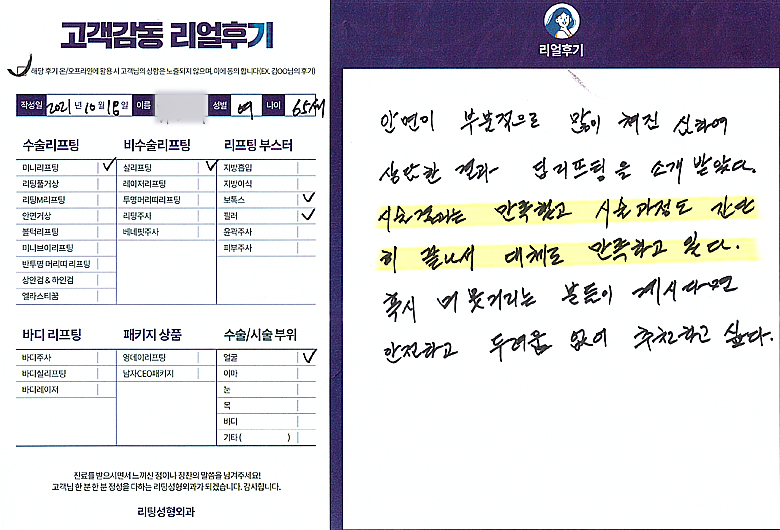 고객감동 리얼후기
해당 후기 온/오프라인에 활용 시 고객님의 성함은 노출되지 않으며, 이에 동의 합니다(EX. 김OO님의 후기)
작성일 2021 년 10 월 18 일 이름 성별 여 나이 65세
수술리프팅
미니리프팅
리팅풀거상
리팅M리프팅
안면거상
블럭리프팅
미니브이리프팅
반투명 머리띠 리프팅
상안검 & 하안검
엘라스티꿈
비수술리프팅
실리프팅
레이저리프팅
투명머리띠리프팅
리팅주사
베네핏주사
리프팅 부스터
지방흡입
지방이식
보톡스
필러
윤곽주사
피부주사
바디 리프팅
바디주사
바디실리프팅
바디레이저
패키지 상품
원데이리프팅
남자CEO패키지
수술/시술 부위
얼굴
이마
눈
목
바디
기타 ( )
진료를 받으시면서 느끼신 점이나 칭찬의 말씀을 남겨주세요!
고객님 한 분 한 분 정성을 다하는 리팅성형외과가 되겠습니다. 감사합니다.
리팅성형외과
리얼후기
안면이 부분적으로 많이 쳐진 심하여
상담한 결과 리프팅을 소개 받았다.
시술결과는 만족했고 시술과정도 간단
히 끝나서 대체로 만족하고 있다.
혹시 머뭇거리는 분들이 계시다면
안전하고 두려움 없이 추천하고 싶다.